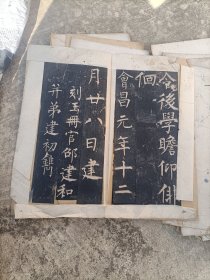 令後學瞻仰俳
佪
會昌元年十二
月廿八日建
刻玉冊官邵建和
并弟建初鐫